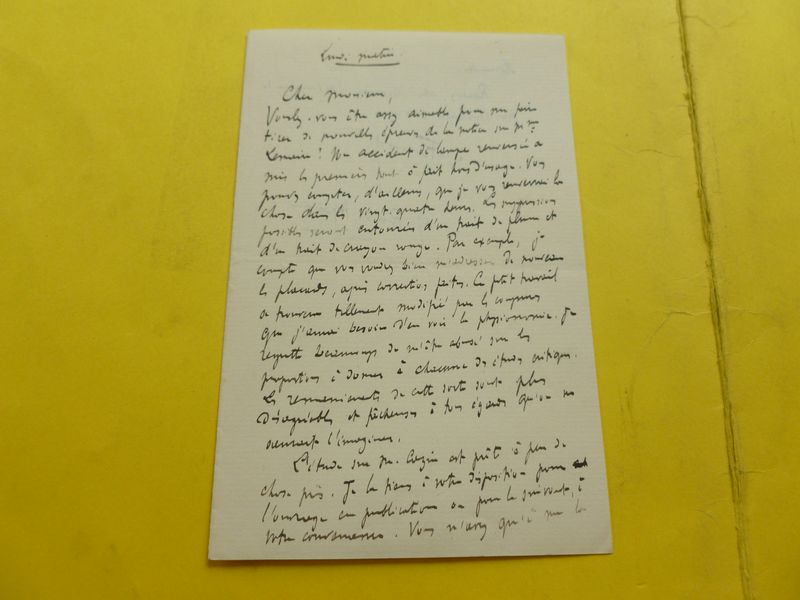 Lundi matin.
Cher monsieur,
Voulez-vous être assez aimable pour me faire
tirer de nouvelles épreuves de la notice sur Mme
Lemaire ? Un accident de lampe renversée a
mis les premières tout à fait hors d'usage. Vous
pouvez compter, d'ailleurs, que je vous renverrai la
chose dans les vingt-quatre heures. Les suppressions
possibles seront entourées d'un trait de plume et
d'un trait de crayon rouge. Par exemple, je
compte que vous voudrez bien m'adresser de nouveau
les placards, après corrections faites. Ce petit travail
se trouvera tellement modifié par les coupures
que j'aurai besoin d'en voir la physionomie. Je
regrette beaucoup de m'être abusé sur les
proportions à donner à chacune des études critiques.
Les remaniements de cette sorte sont plus
désagréables et fâcheuses à tous égards qu'on ne
saurait l'imaginer.
L'étude sur M. Cazin est prête à peu de
chose près. Je la tiens à votre disposition pour
l'ouvrage en publication ou pour le suivant, à
votre convenance. Vous n'avez qu'à me la